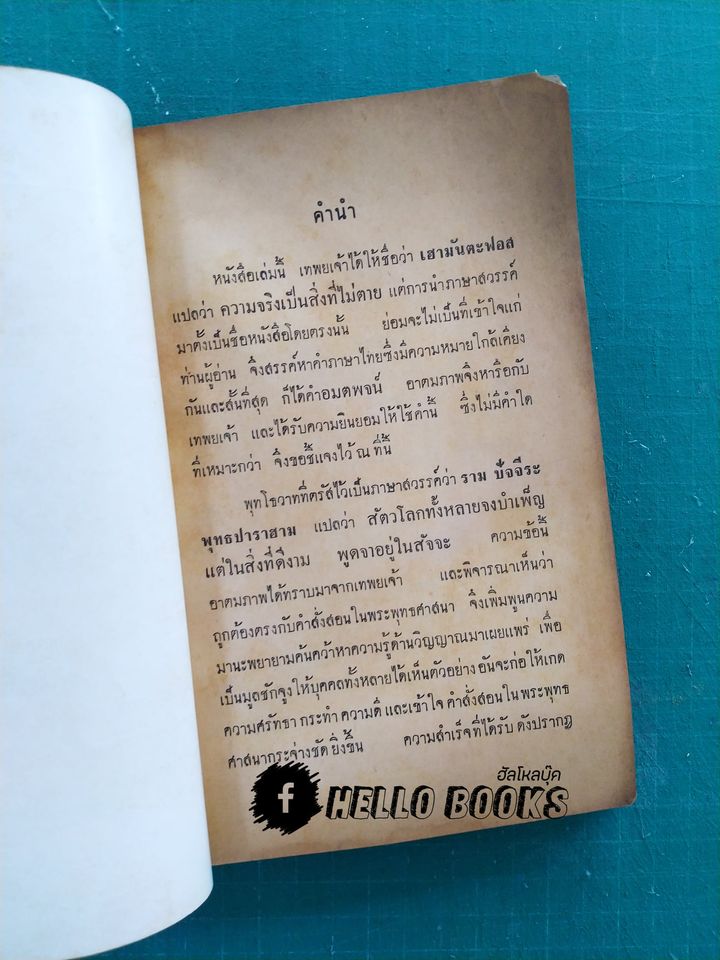 คำนำ
หนังสือเล่มนี้ เทพยเจ้าได้ให้ชื่อว่า เฮามันตะฟอส
แปลว่า ความจริงเป็นสิ่งที่ไม่ตาย แต่การนำภาษาสวรรค์
มาตั้งเป็นชื่อหนังสือโดยตรงนั้น ย่อมจะไม่เป็นที่เข้าใจแก่
ท่านผู้อ่าน จึงสรรค์หาคำภาษาไทยซึ่งมีความหมายใกล้เคียง
กันและสั้นที่สุด ก็ได้คำอมตพจน์ อาตมภาพจึงหารือกับ
เทพยเจ้า และได้รับความยินยอมให้ใช้คำนี้ ซึ่งไม่มีคำใด
ที่เหมาะกว่า จึงขอชี้แจงไว้ ณ ที่นี้
พุทโธวาทที่ตรัสไว้เป็นภาษาสวรรค์ว่า ราม ปัจจีระ
พุทธปาราฮาม แปลว่า สัตวโลกทั้งหลายจงบำเพ็ญ
แต่ในสิ่งที่ดีงาม พูดจาอยู่ในสัจจะ ความข้อนี้
อาตมภาพได้ทราบมาจากเทพยเจ้า และพิจารณาเห็นว่า
ถูกต้องตรงกับคำสั่งสอนในพระพุทธศาสนา จึงเพิ่มพูนความ
มานะพยายามค้นคว้าหาความรู้ด้านวิญญาณมาเผยแพร่ เพื่อ
เป็นมูลชักจูงให้บุคคลทั้งหลายได้เห็นตัวอย่าง อันจะก่อให้เกิด
ความศรัทธา กระทำ ความดี และเข้าใจ คำสั่งสอน ใน พระพุทธ
ศาสนากระจ่างชัด ยิ่งขึ้น ความสำเร็จที่ได้รับ ดังปรากฏ
ฮัลโหลบุ๊ค
f HELLO BOOKS